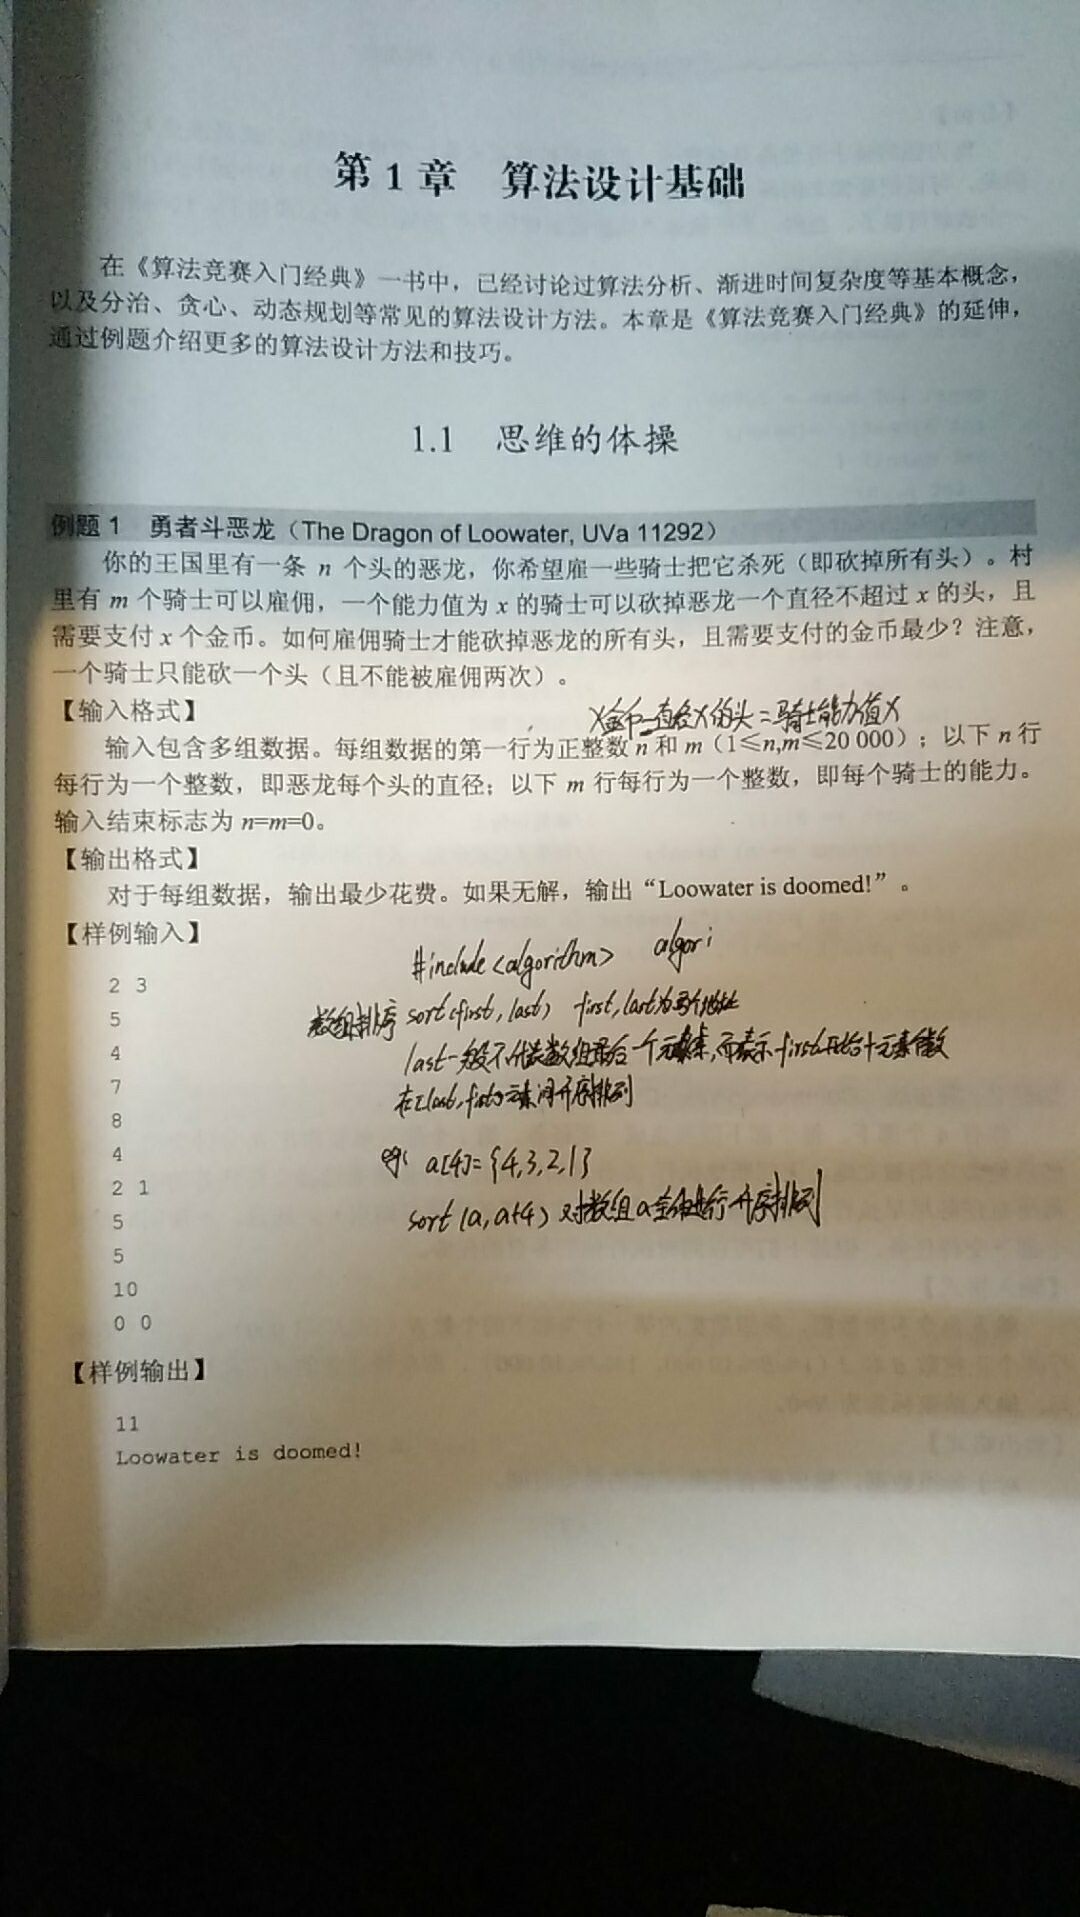 第1章 算法设计基础
在《算法竞赛入门经典》一书中，已经讨论过算法分析、渐进时间复杂度等基本概念，
以及分治、贪心、动态规划等常见的算法设计方法。本章是《算法竞赛入门经典》的延伸，
通过例题介绍更多的算法设计方法和技巧。
1.1 思维的体操
例题1 勇者斗恶龙（The Dragon of Loowater, UVa 11292）
你的王国里有一条 n 个头的恶龙，你希望雇一些骑士把它杀死（即砍掉所有头）。村
里有 m 个骑士可以雇佣，一个能力值为 x 的骑士可以砍掉恶龙一个直径不超过 x 的头，且
需要支付 x 个金币。如何雇佣骑士才能砍掉恶龙的所有头，且需要支付的金币最少？注意，
一个骑士只能砍一个头（且不能被雇佣两次）。
【输入格式】
X金币=直径X的头=骑士能力值X
输入包含多组数据。每组数据的第一行为正整数 n 和 m（1≤n,m≤20 000）；以下 n 行
每行为一个整数，即恶龙每个头的直径；以下 m 行每行为一个整数，即每个骑士的能力。
输入结束标志为 n=m=0。
【输出格式】
对于每组数据，输出最少花费。如果无解，输出“Loowater is doomed!”。
【样例输入】
#include<algorithm> algori
2 3
数组排序 sort(first, last) first, last为两个地址
5
last一般不代表数组最后一个元素,而表示first开始+元素个数
4
7
8
4
eg: a[4]={4,3,2,1}
2 1
sort(a, a+4) 对数组a全体进行升序排列
5
5
10
0 0
【样例输出】
11
Loowater is doomed!